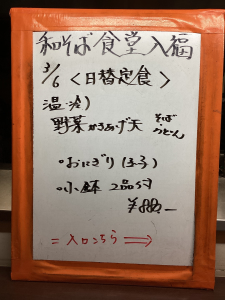 和そば食堂入福
3/6 <日替定食>
温・冷)
野菜かきあげ天 そば うどん
・おにぎり(ふ子)
・小鉢 2品付
¥880.―
= 入口こちら ⇒